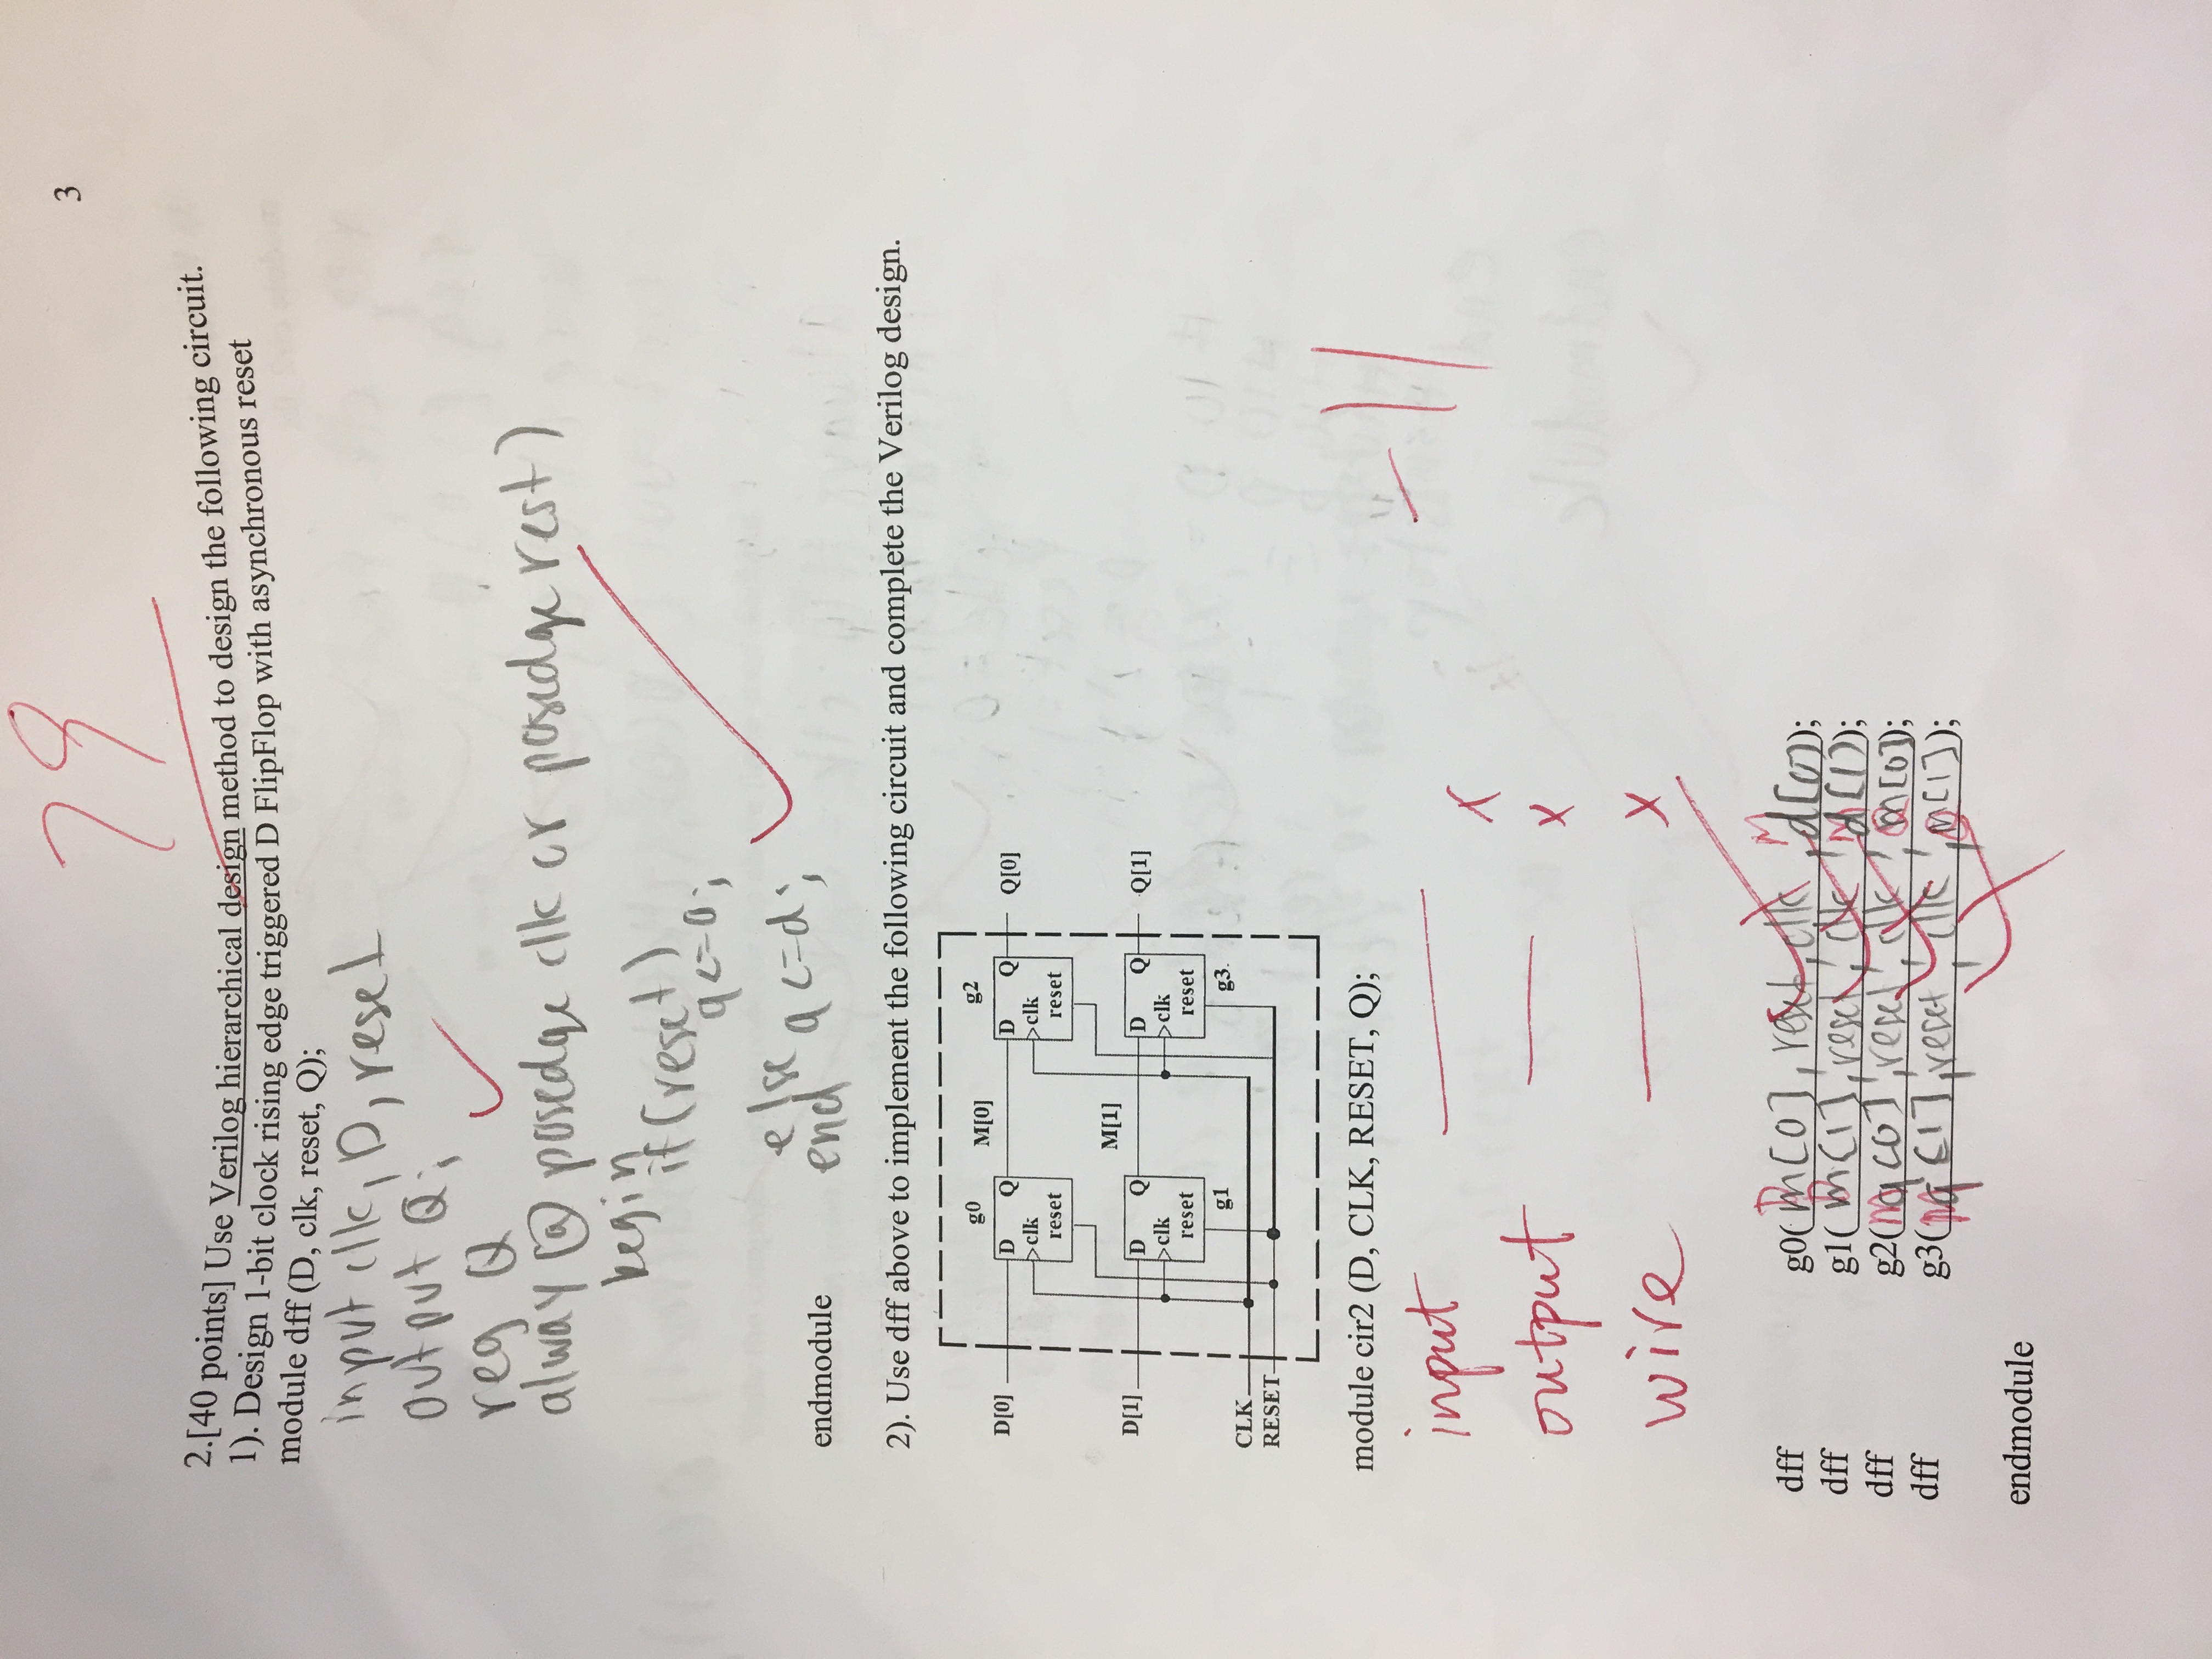 3
2.[40 points] Use Verilog hierarchical design method to design the following circuit.
1). Design 1-bit clock rising edge triggered D FlipFlop with asynchronous reset
module dff (D, clk, reset, Q);
input clk, D, reset
output Q;
reg Q
alway @ posedge clk or posedge rest)
begin
if (reset)
q <= 0;
else q <= d;
end
endmodule
2). Use dff above to implement the following circuit and complete the Verilog design.
g0 M[0] g2
D[0] D Q D Q Q[0]
clk clk
reset reset
M[1]
D[1] D Q D Q Q[1]
clk clk
reset reset
g1 g3.
CLK
RESET
module cir2 (D, CLK, RESET, Q);
-11
input
x
output x
wire x
dff g0( m[0], reset, clk, d[0]);
dff g1( m[1], reset, clk, d[1]);
dff g2( q[0], reset, clk, m[0]);
dff g3( q[1], reset, clk, m[1]);
endmodule